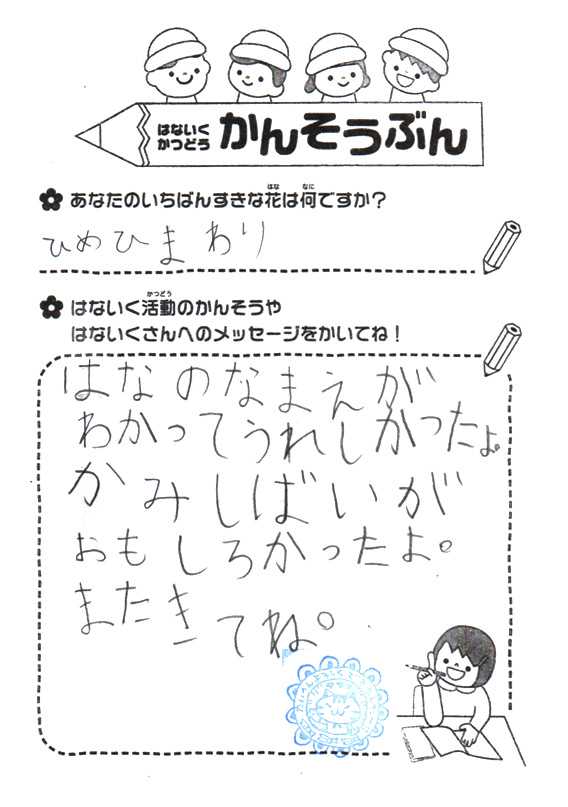 はないく
かつどう
かんそうぶん
あなたのいちばんすきな花は何ですか？
はな なに
ひめひまわり
はないく活動のかんそうや
かつどう
はないくさんへのメッセージをかいてね！
はなのなまえが
わかってうれしかったよ。
かみしばいが
おもしろかったよ。
またきてね。